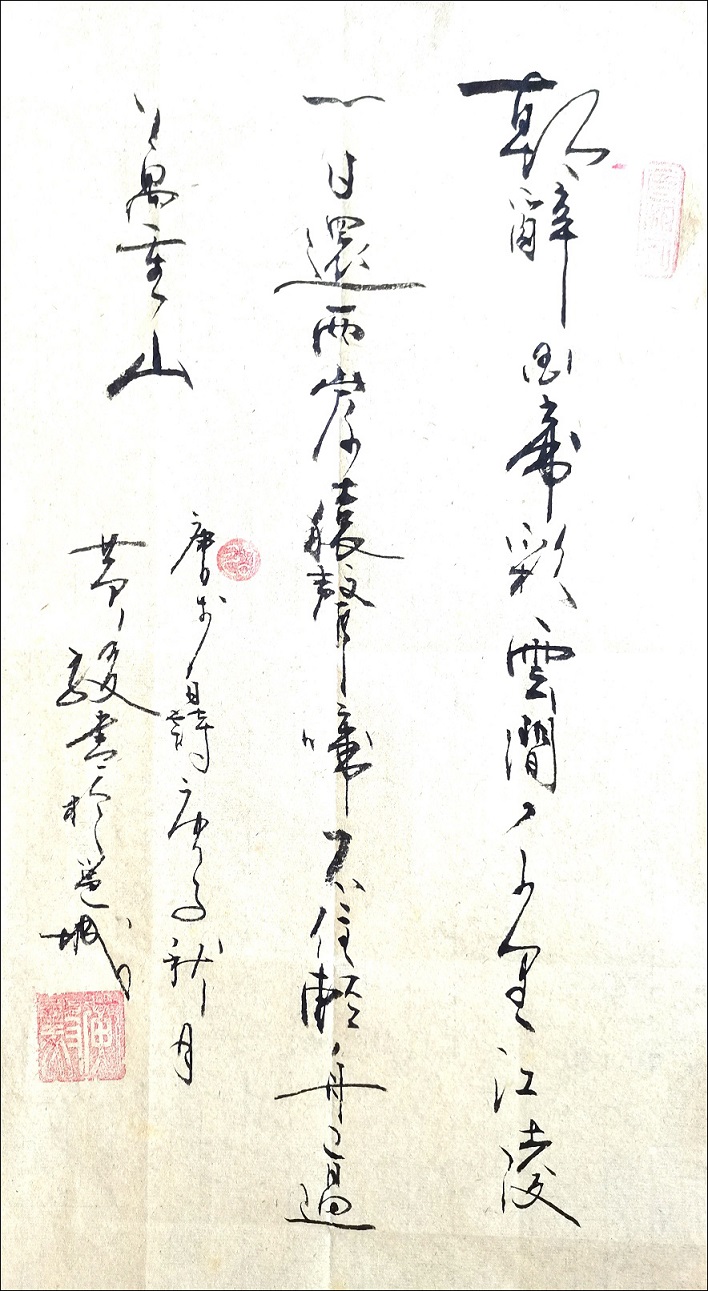 朝辭白帝彩雲間千里江陵
一日還兩岸猿聲啼不住輕舟已過
萬重山
唐詩秋月
黃書於邕城